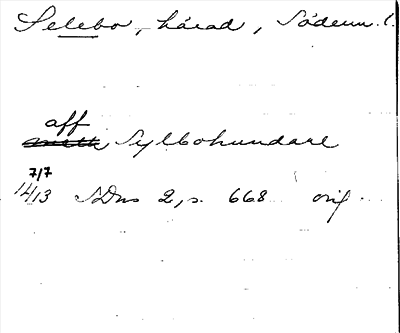 Selebo, härad, Söderm. l.
aff
Sylbohundare
7/7
1413 SDns 2, s. 668 orig.